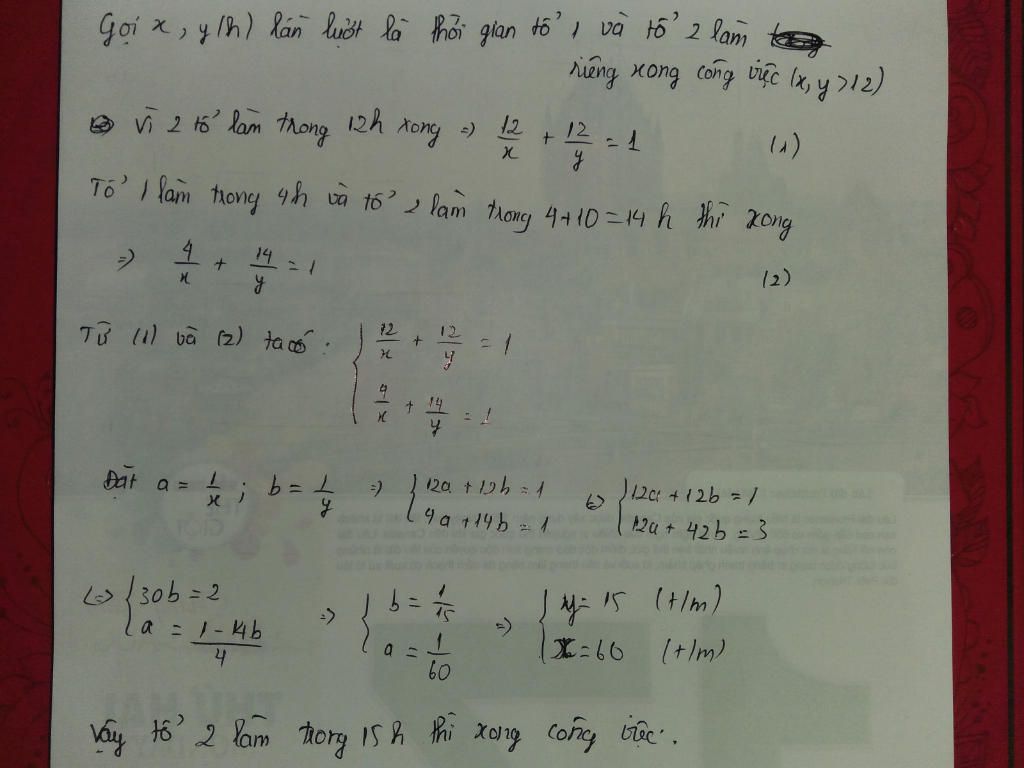 Gọi x, y(h) lần lượt là thời gian tổ 1 và tổ 2 làm
riêng xong công việc (x, y >12)
Vì 2 tổ làm trong 12h xong => 12/x + 12/y = 1 (1)
Tổ 1 làm trong 4h và tổ 2 làm trong 4+10=14 h thì xong
=> 4/x + 14/y = 1 (2)
Từ (1) và (2) ta có : { 12/x + 12/y = 1
4/x + 14/y = 1
Đặt a = 1/x ; b = 1/y => { 12a + 12b = 1 <=> { 12a + 12b = 1
4a + 14b = 1 12a + 42b = 3
<=> { 30b = 2 => { b = 1/15 => { y = 15 (t/m)
a = (1-14b)/4 a = 1/60 x = 60 (t/m)
Vậy tổ 2 làm trong 15h thì xong công việc.